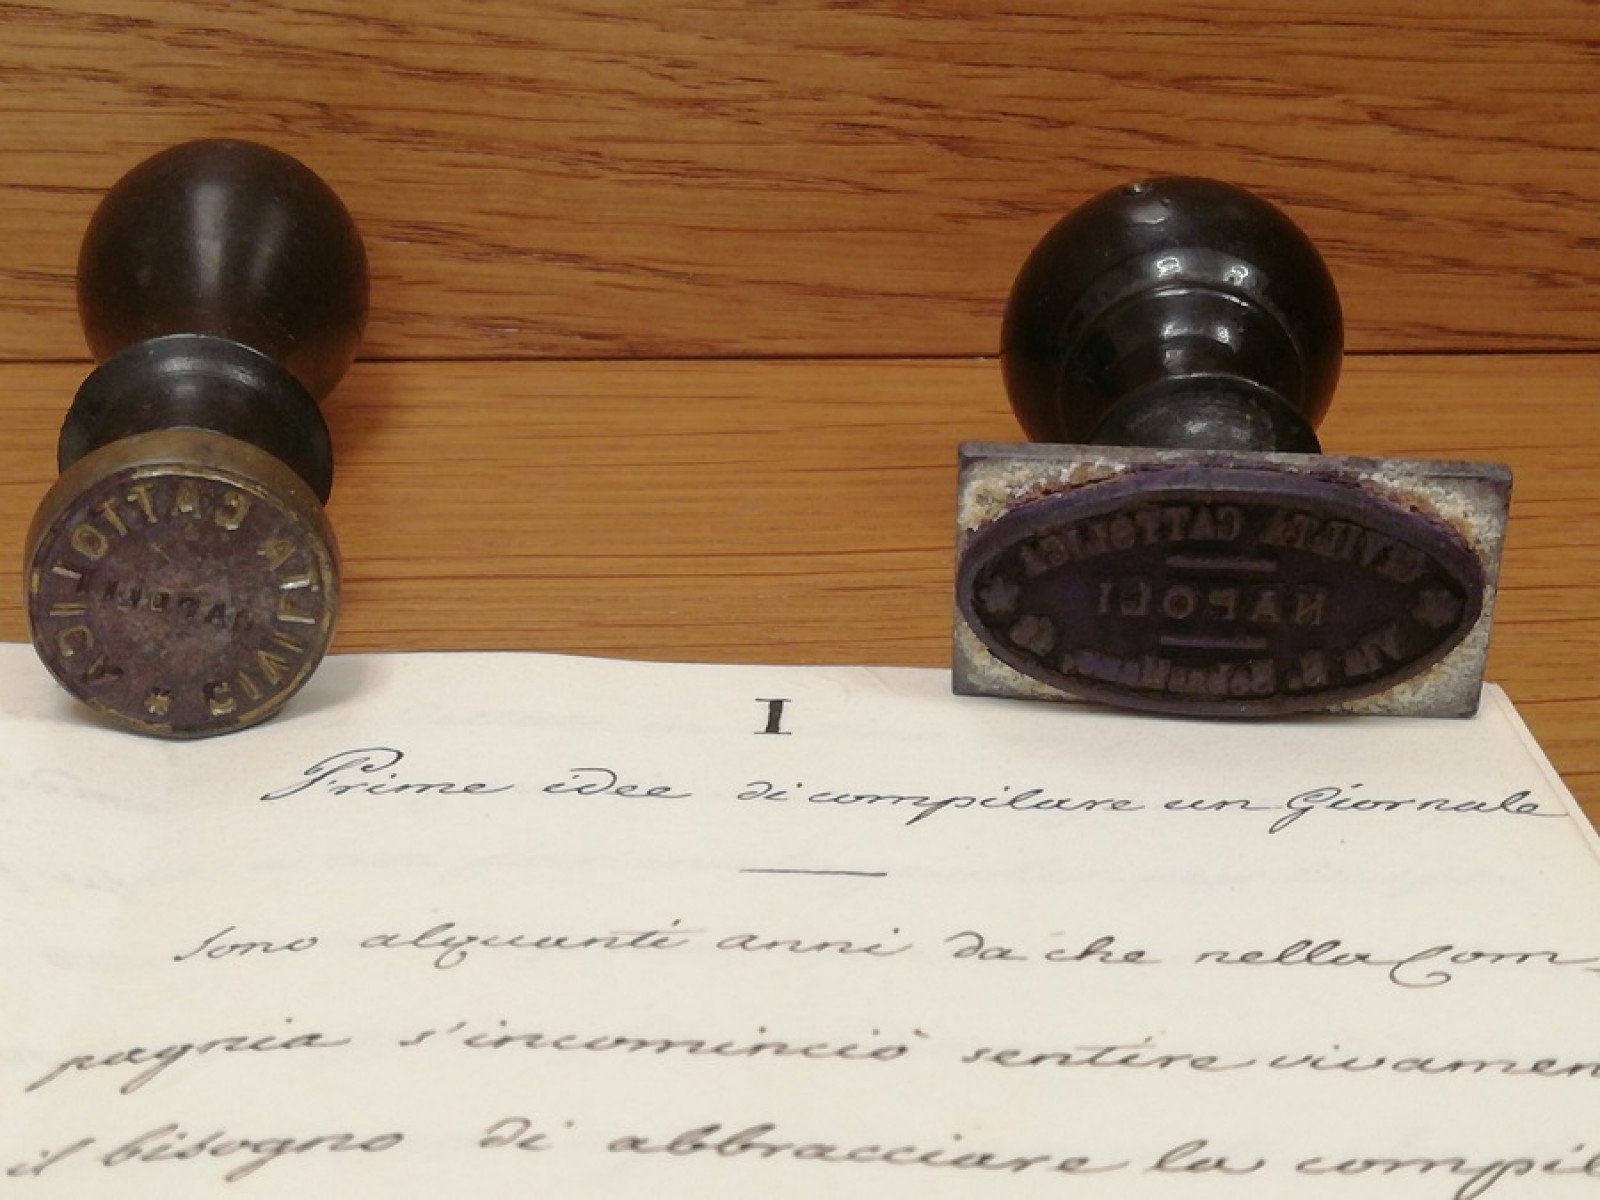 CIVILTA CATTOLICA *
NAPOLI
CIVILTA CATTOLICA
NAPOLI
I
Prime idee di compilare un Giornale
Sono alquanti anni da che nella Com-
pagnia s'incominciò sentire vivamen
il bisogno di abbracciare la compil